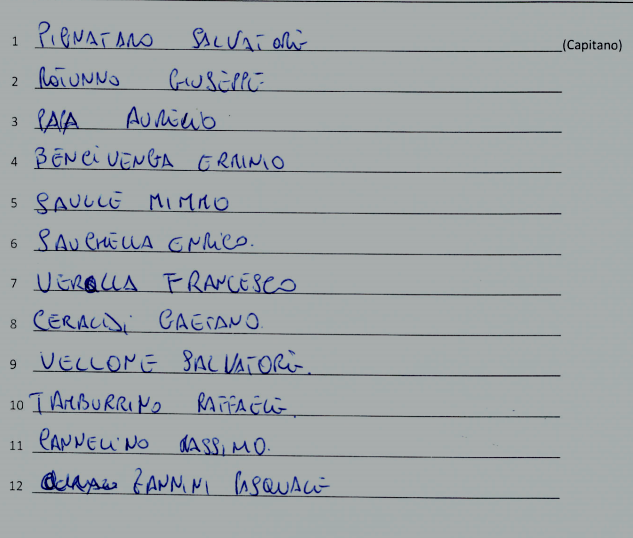 1 PIGNATARO SALVATORE (Capitano)
2 ROTUNNO GIUSEPPE
3 PAPA AURELIO
4 BENCIVENGA ERMINIO
5 SAULLE MIMMO
6 SAUCHELLA ENRICO.
7 VEROLLA FRANCESCO
8 CERALDI GAETANO.
9 VELLONE SALVATORE.
10 TAMBURRINO RAFFAELE
11 CANNELINO MASSIMO.
12 ZANNINI PASQUALE